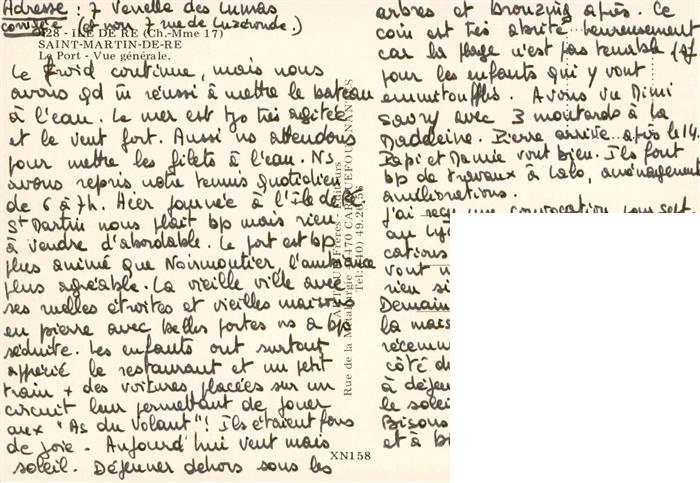 Adresse : 7 Venelle des Lumas
(et non 7 rue de Luzéronde.)
428 - ILE DE RE (Ch.-Mme 17)
SAINT-MARTIN-DE-RE
Le Port - Vue générale.
Le froid continue, mais nous
avons qd m̂ réussi à mettre le bateau
à l'eau. La mer est tjs très agitée
et le vent fort. Aussi ns attendons
pour mettre les filets à l'eau. Ns
avons repris notre tennis quotidien
de 6 à 7h. Hier journée à l'Île de Ré.
St Martin nous plait bp mais rien
à vendre d'abordable. Le port est bp
plus animé que Noirmoutier, l'ambiance
plus agréable. La vieille ville avec
ses ruelles étroites et vieilles maisons
en pierre avec belles portes ns a bp
séduite. Les enfants ont surtout
apprécié le restaurant et un petit
train + des voitures placées sur un
circuit leur permettant de jouer
aux "As du volant"! Ils étaient fous
de joie. Aujourd'hui vent mais
soleil. Déjeuner dehors sous les
arbres et bronzing après. Ce
coin est très abrité heureusement
car la plage n'est pas tenable
pour les enfants qui y vont
emmitouflés. Avons vu Mimi
Savry avec 3 moutards à la
Madeleine. Pierre arrive après le 14.
Papi et Mamie vont bien. Ils font
bp de travaux à Lalo, aménagement
améliorations.
j'ai reçu une convocation pour sept.
au Ly
cations
vont
rien si
Demain
la mais
récemm
côté d
à déjeu
le solei
Bisous
et à bi
Rue de la Métallurgie - 44470 CARQUEFOU - NANTES
XN158